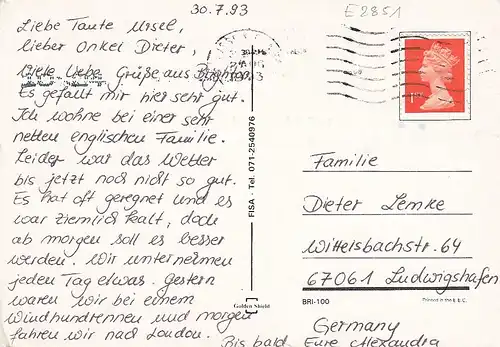 30.7.93
E2851
Liebe Tante Ursel,
lieber Onkel Dieter,
Viele liebe Grüße aus Brighton.
Es gefällt mir hier sehr gut.
Ich wohne bei einer sehr
netten englischen Familie.
Leider war das Wetter
bis jetzt noch nicht so gut.
Es hat oft geregnet und es
war ziemlich kalt, doch
ab morgen soll es besser
werden. Wir unternehmen
jeden Tag etwas. Gestern
waren wir bei einem
Windhundrennen und morgen
fahren wir nach London.
Bis bald
Eure Alexandra
FISA - Tel. 071-2540976
Golden Shield
1ST
Familie
Dieter Lemke
Wittelsbachstr. 64
67061 Ludwigshafen
BRI-100
Printed in the E.E.C.
Germany